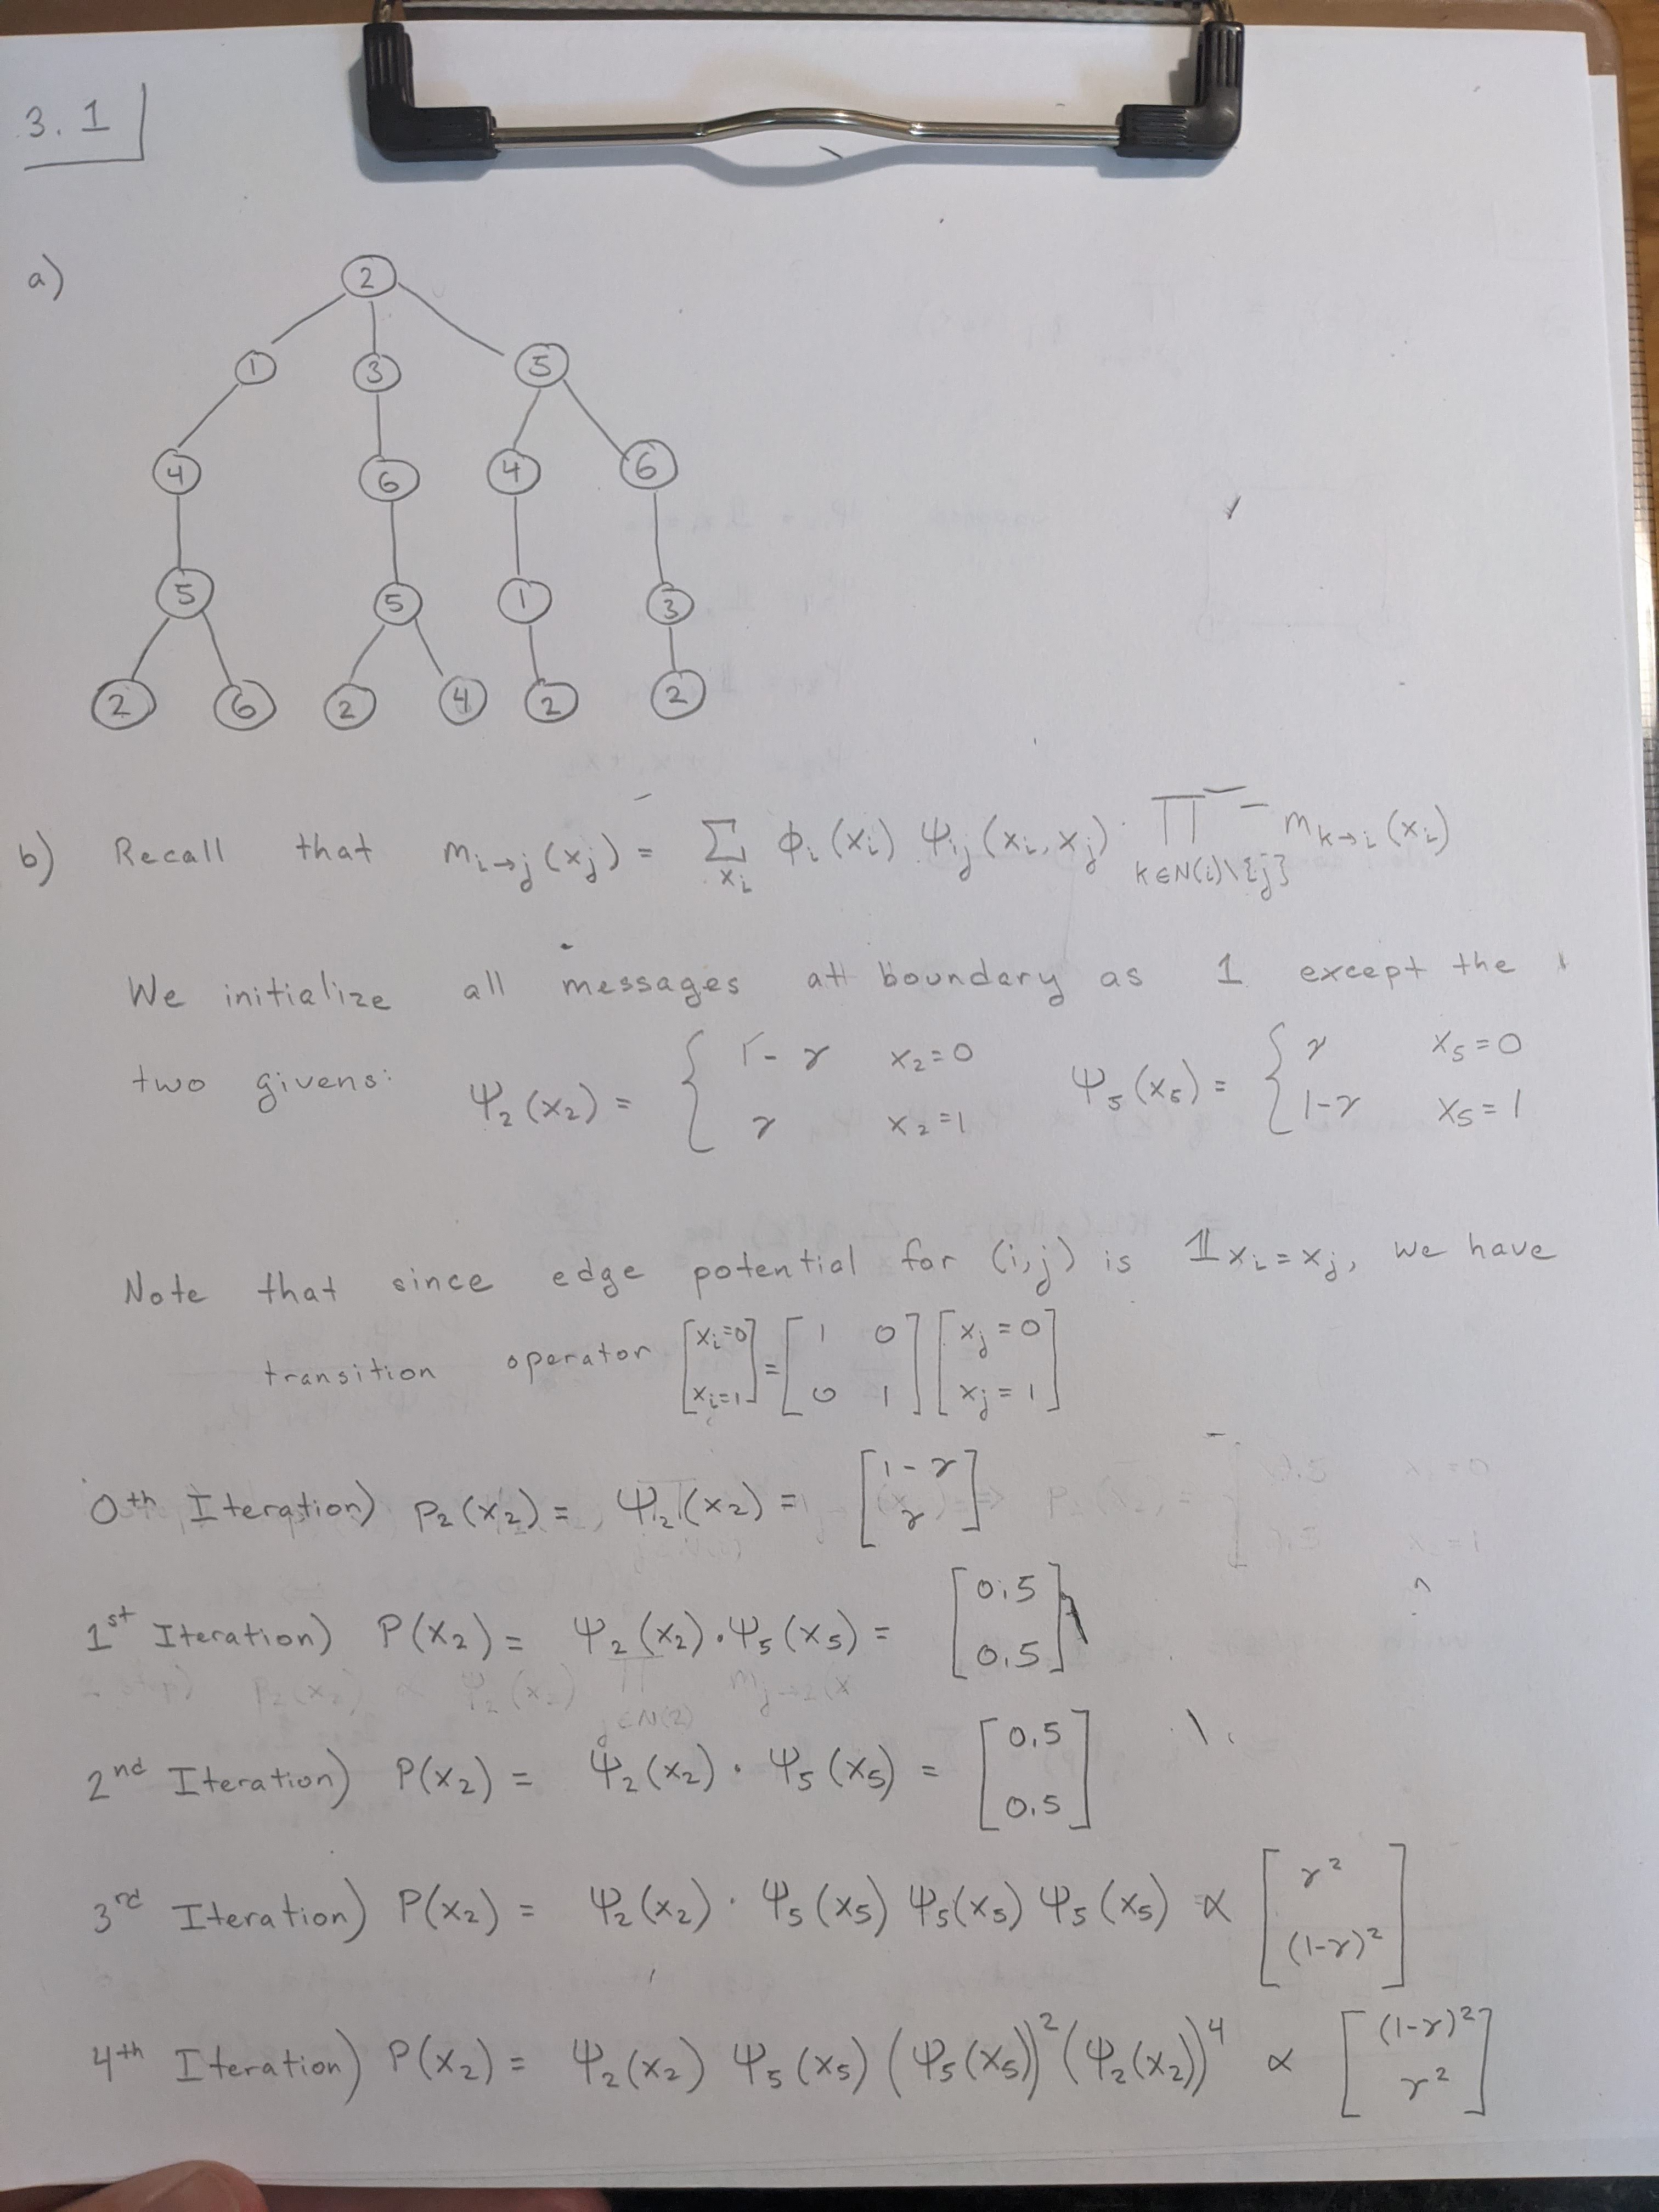 3.1
a)
2
1 3 5
4 6 4 6
5 5 1 3
2 6 2 4 2 2
b) Recall that m_{i→j}(x_j) = ∑_{x_i} ϕ_i(x_i) ψ_{ij}(x_i, x_j) · ∏_{k∈N(i)\{j}} m_{k→i}(x_i)
We initialize all messages at boundary as 1 except the
two givens: ψ_2(x_2) = { 1-γ x_2=0 ; γ x_2=1 ψ_5(x_5) = { γ x_5=0 ; 1-γ x_5=1
Note that since edge potential for (i,j) is 𝟙_{x_i=x_j}, we have
transition operator [x_i=0 ; x_i=1] = [1 0 ; 0 1] [x_j=0 ; x_j=1]
0th Iteration) P_2(x_2) = ψ_2(x_2) = [1-γ ; γ]
1st Iteration) P(x_2) = ψ_2(x_2) · ψ_5(x_5) = [0.5 ; 0.5]
2nd Iteration) P(x_2) = ψ_2(x_2) · ψ_5(x_5) = [0.5 ; 0.5]
3rd Iteration) P(x_2) = ψ_2(x_2) · ψ_5(x_5) ψ_5(x_5) ψ_5(x_5) ∝ [γ² ; (1-γ)²]
4th Iteration) P(x_2) = ψ_2(x_2) ψ_5(x_5) (ψ_5(x_5))² (ψ_2(x_2))⁴ ∝ [(1-γ)² ; γ²]